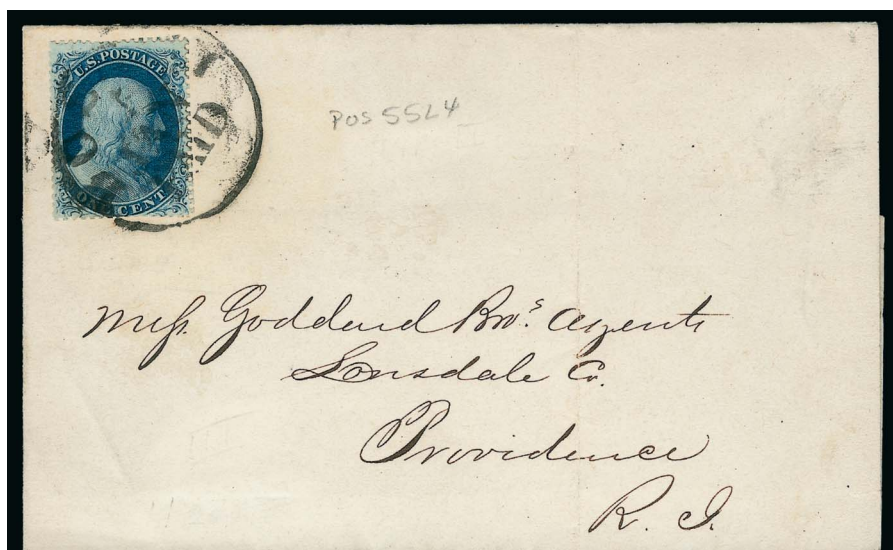 U.S. POSTAGE
PAID
ONE CENT
POS 55L4
Mess. Goddard Bros. Agents
Lonsdale Co.
Providence
R. I.